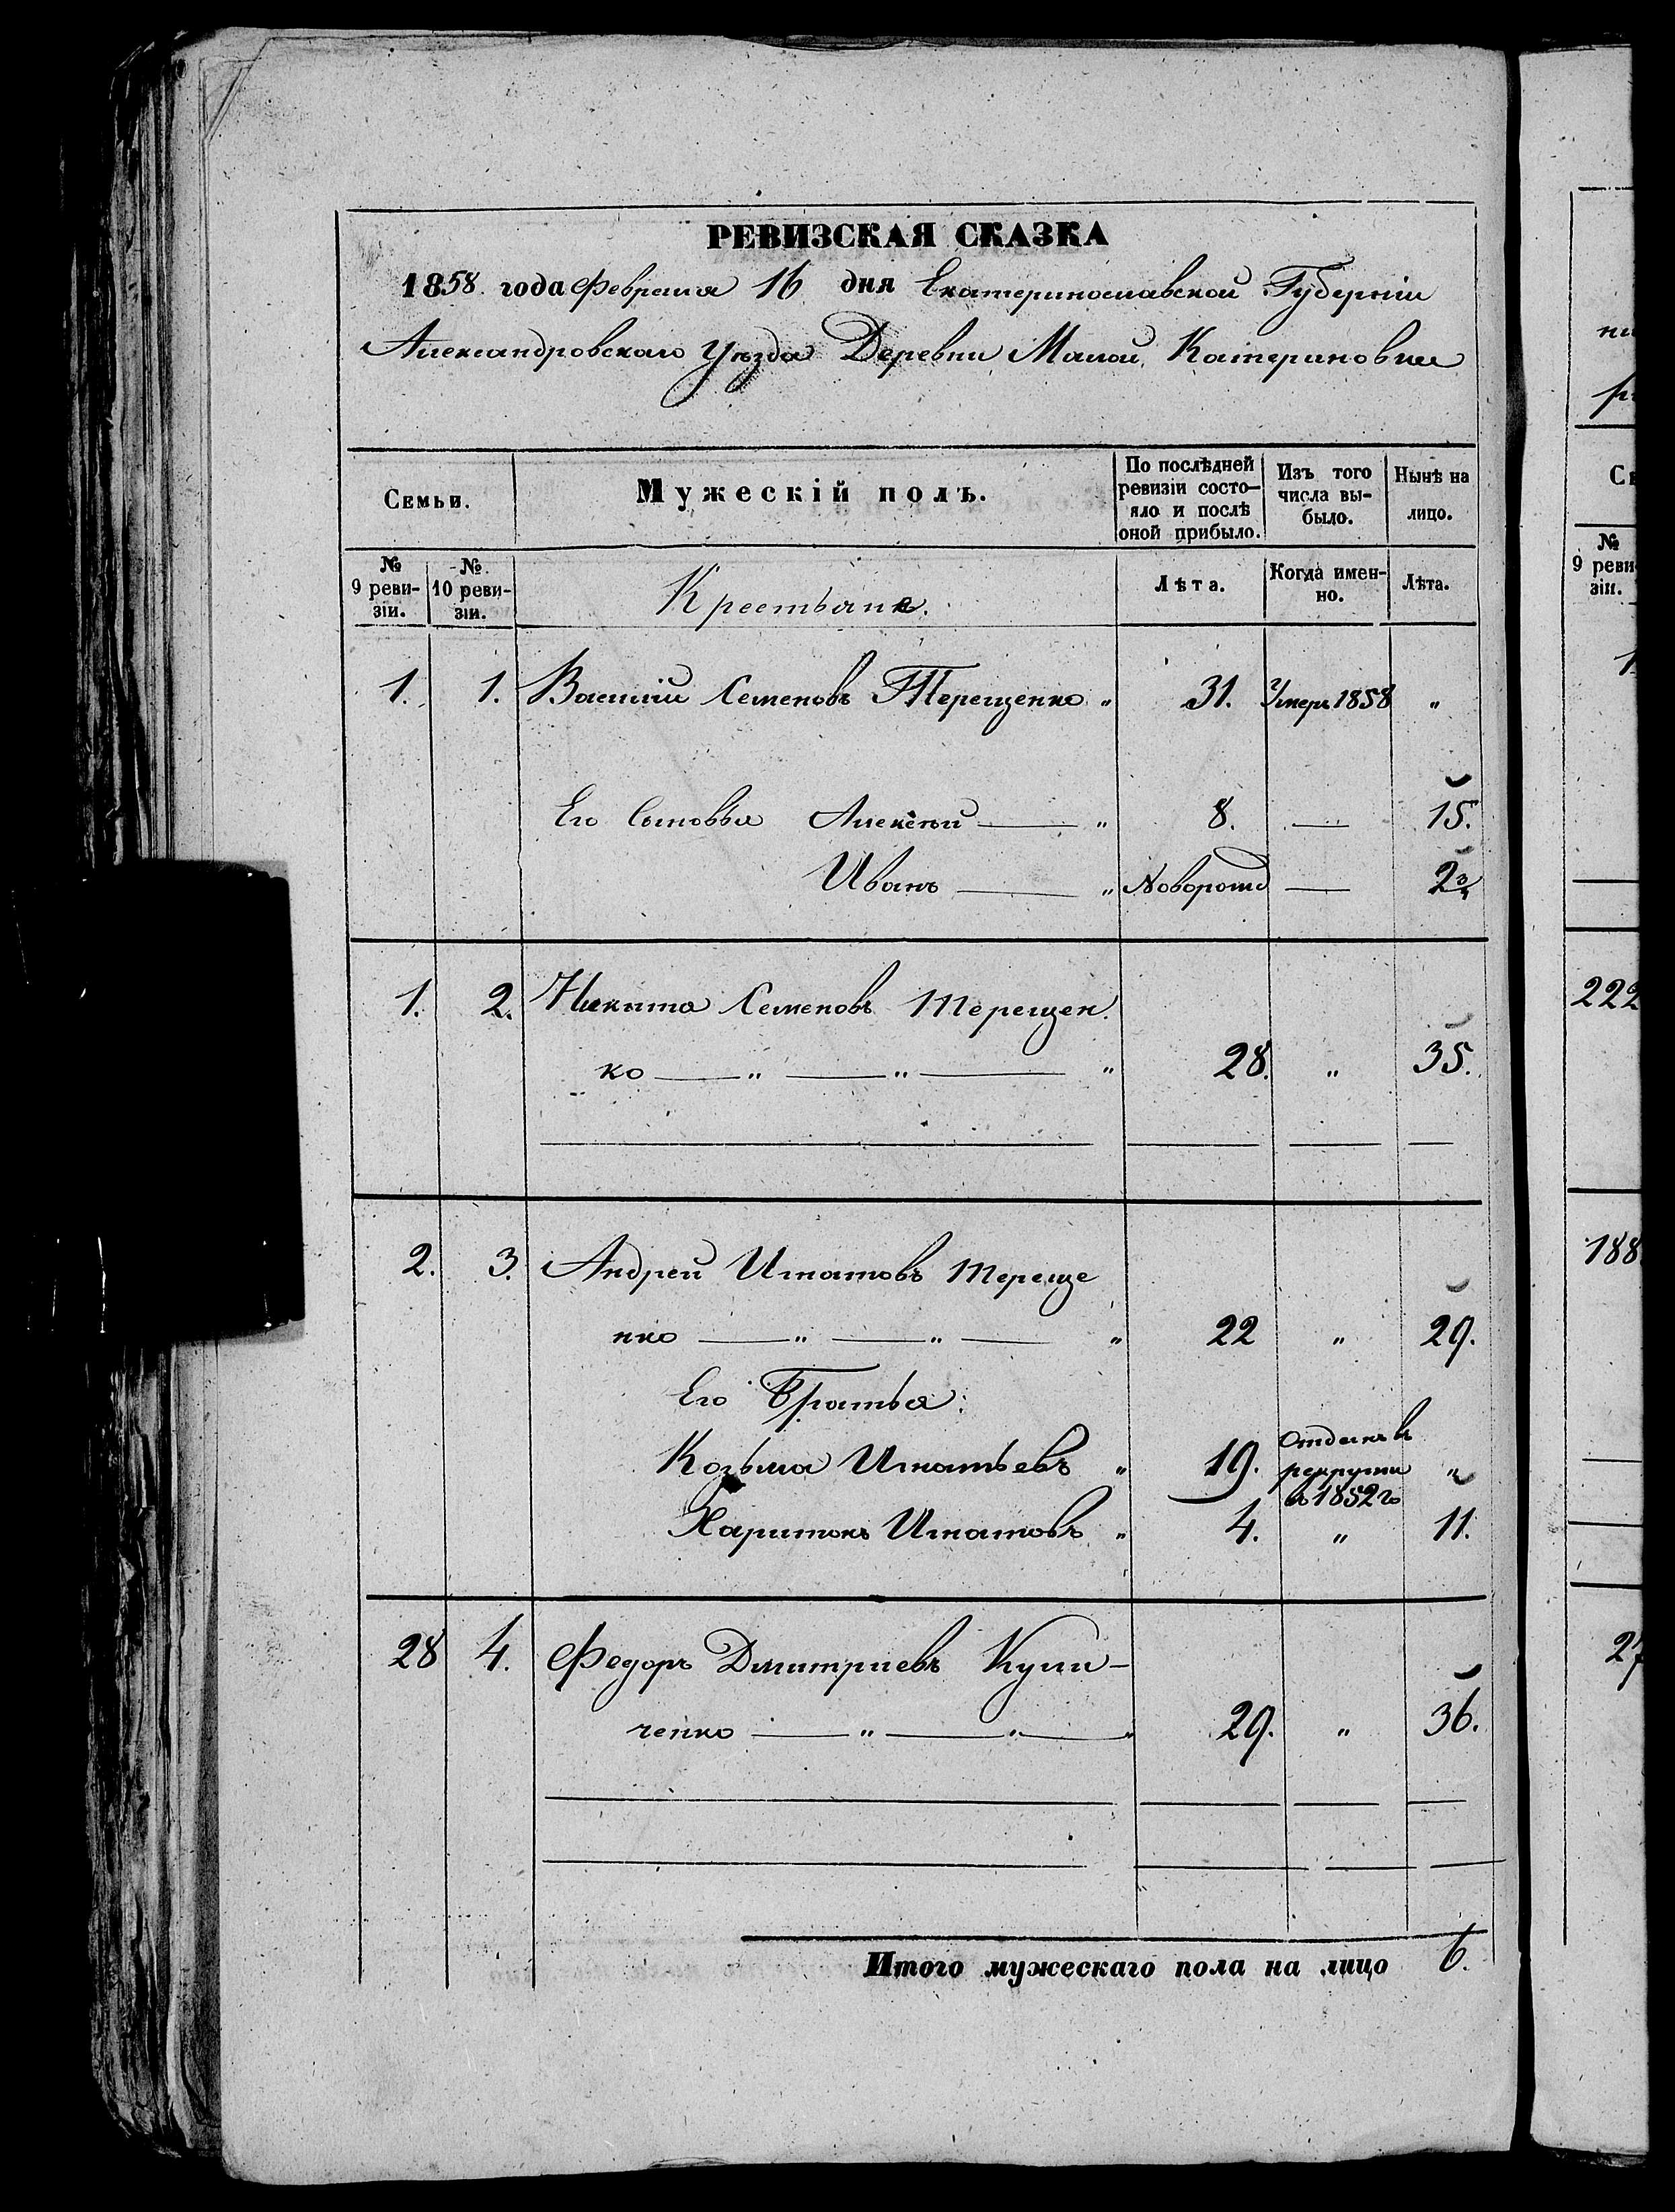 РЕВИЗСКАЯ СКАЗКА
1858 года Февраля 16 дня Екатеринославской Губерніи
Александровскаго Уѣзда Деревни Малой Катериновки
Семьи.
Мужескій полъ.
По послѣдней ревизіи состояло и послѣ оной прибыло.
Изъ того числа выбыло.
Нынѣ на лицо.
№ 9 ревизіи.
№ 10 ревизіи.
Крестьяне.
Лѣта.
Когда именно.
Лѣта.
1. 1. Василій Семеновъ Терещенко „ 31. Умеръ 1858 „
Его Сыновья Алексѣй — „ 8. — 15.
Иванъ — „Новорожд — 2 3/4
1. 2. Никита Семеновъ Терещен.
ко — „ — „ — „ 28. „ 35.
2. 3. Андрей Игнатовъ Тереще
нко — „ — „ — „ 22 „ 29.
Его Братья:
Козьма Игнатьевъ „ 19. Отданъ в рекруты в 1852 го „
Харитонъ Игнатовъ „ 4. „ 11.
28 4. Федоръ Дмитриевъ Кули-
ченко — „ — „ — „ 29. „ 36.
Итого мужескаго пола на лицо 6.
№
9 реви
зіи.
1
222
188
27